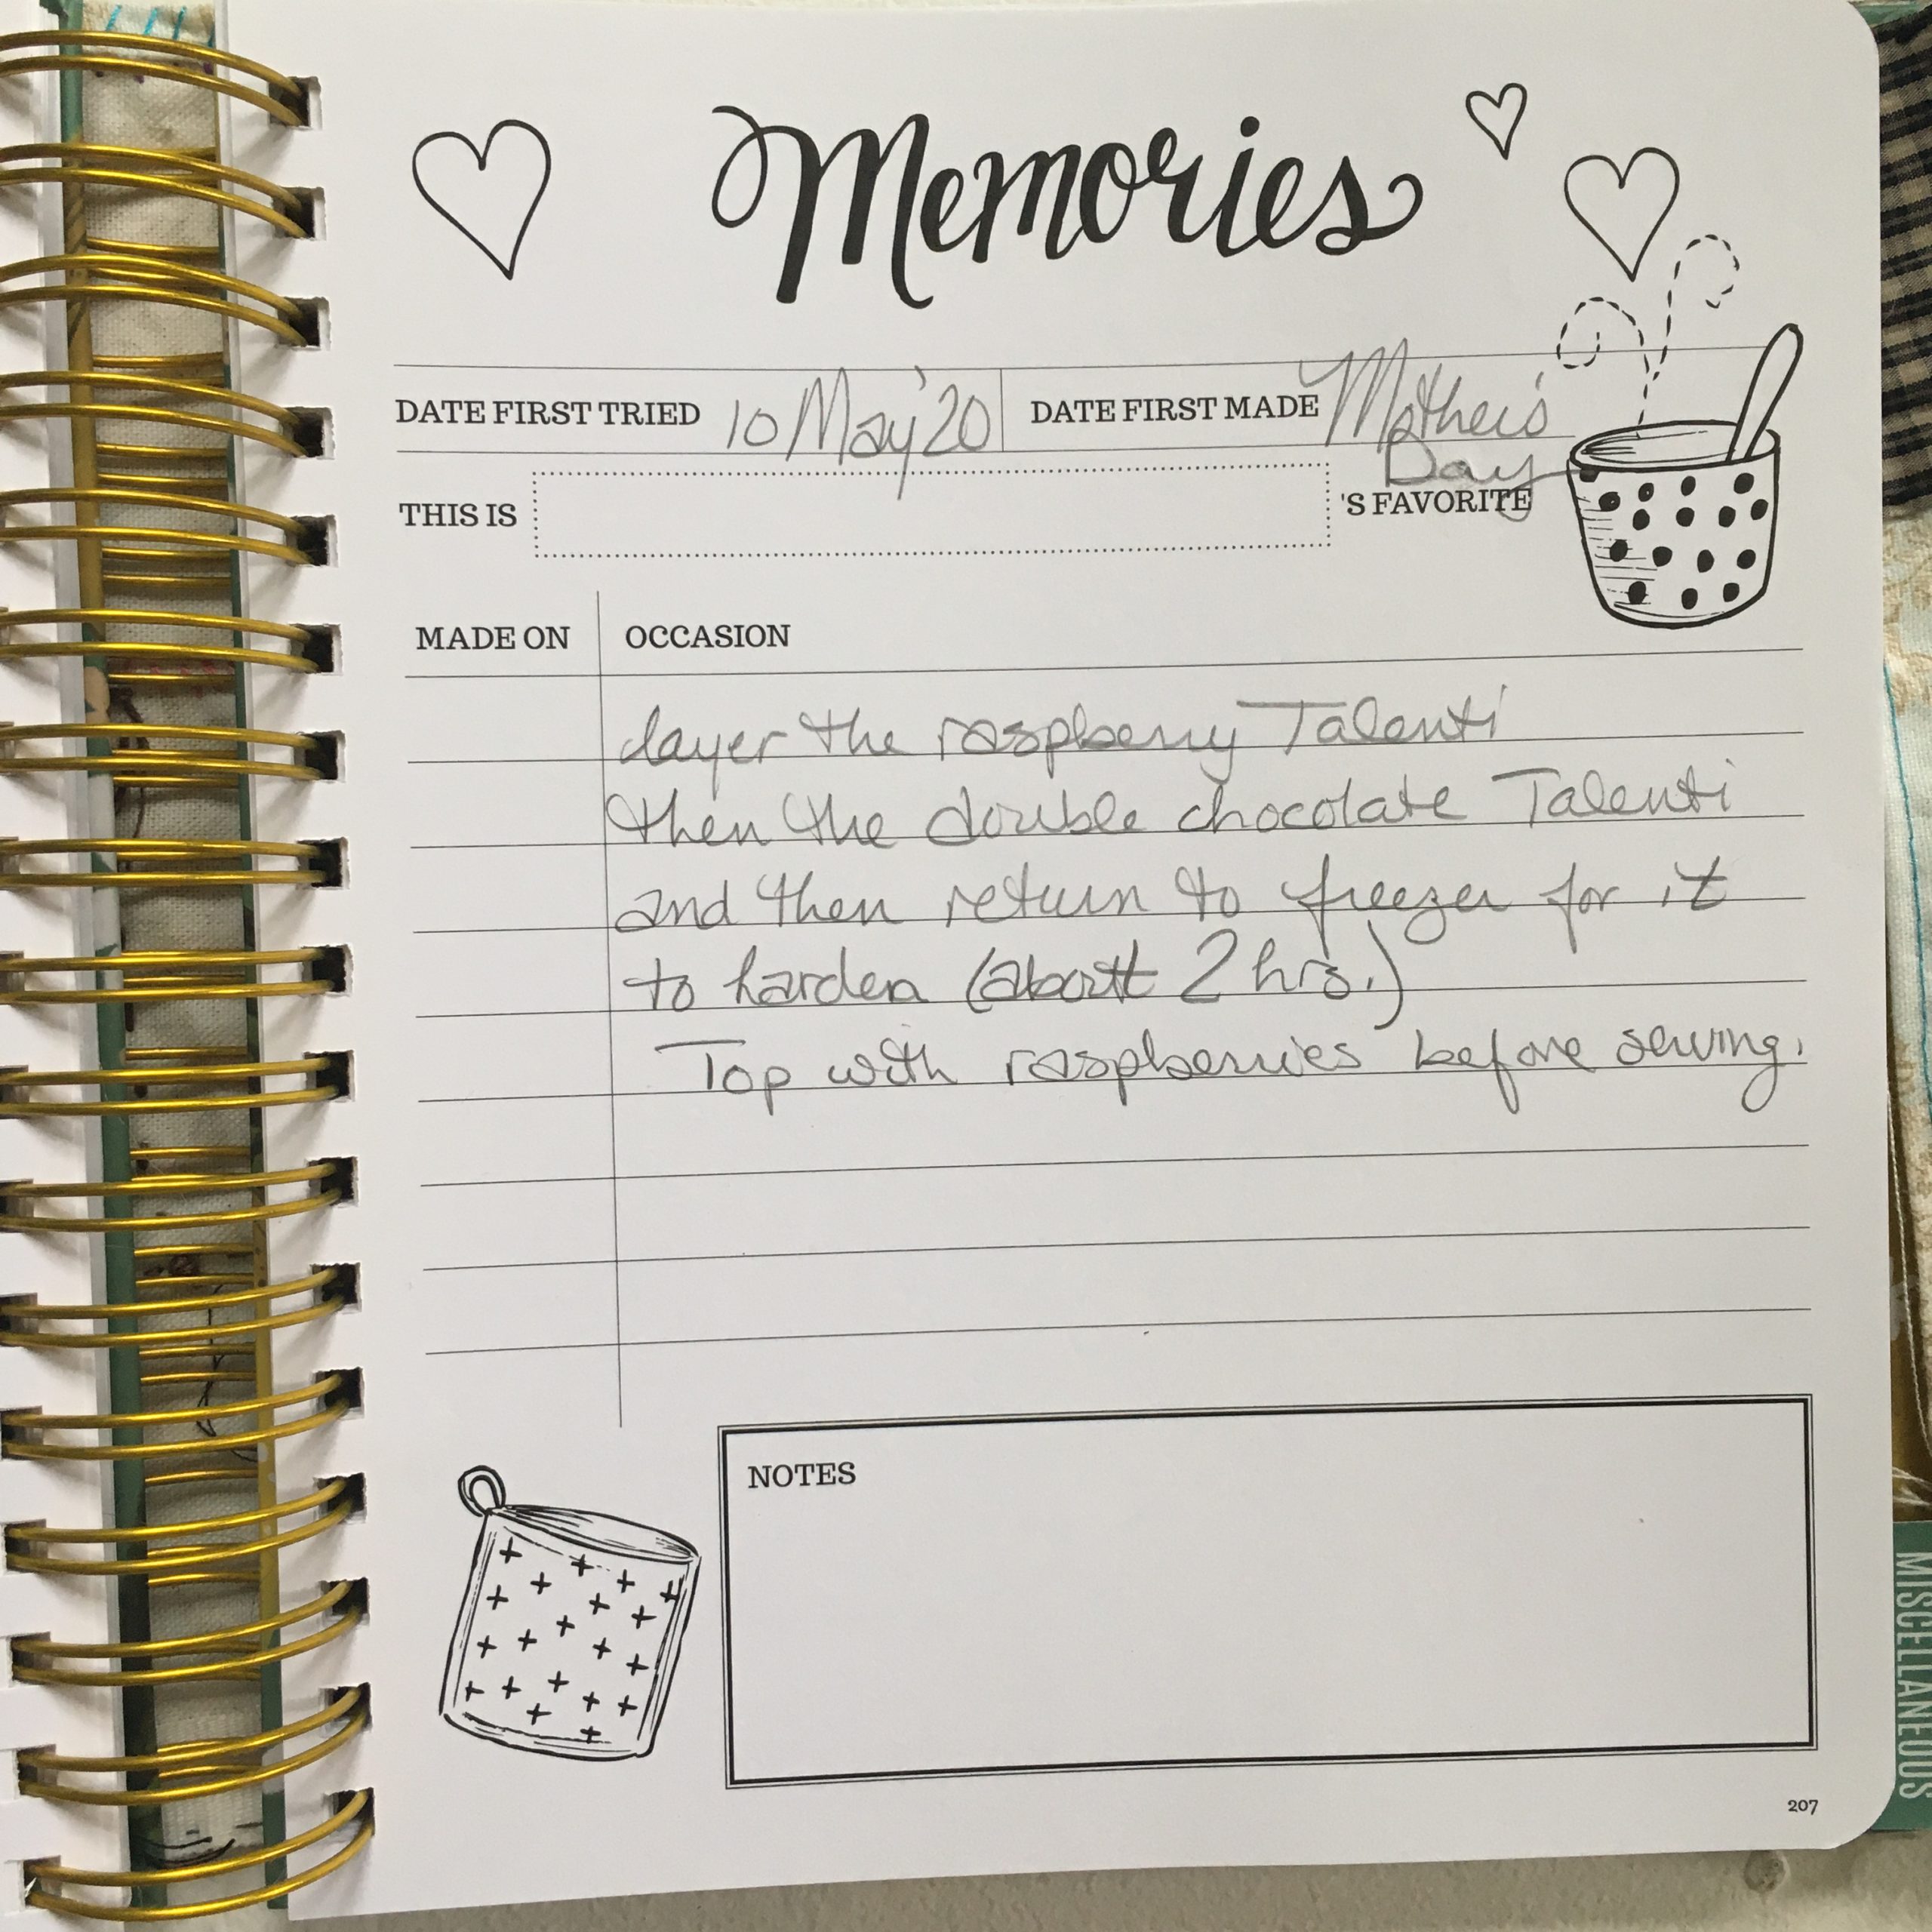 Memories
DATE FIRST TRIED 10 May '20 DATE FIRST MADE Mother's
Day
THIS IS 'S FAVORITE
MADE ON OCCASION
layer the raspberry Talenti
then the double chocolate Talenti
and then return to freezer for it
to harden (about 2 hrs.)
Top with raspberries before serving.
NOTES
207
MISCELLANEOUS